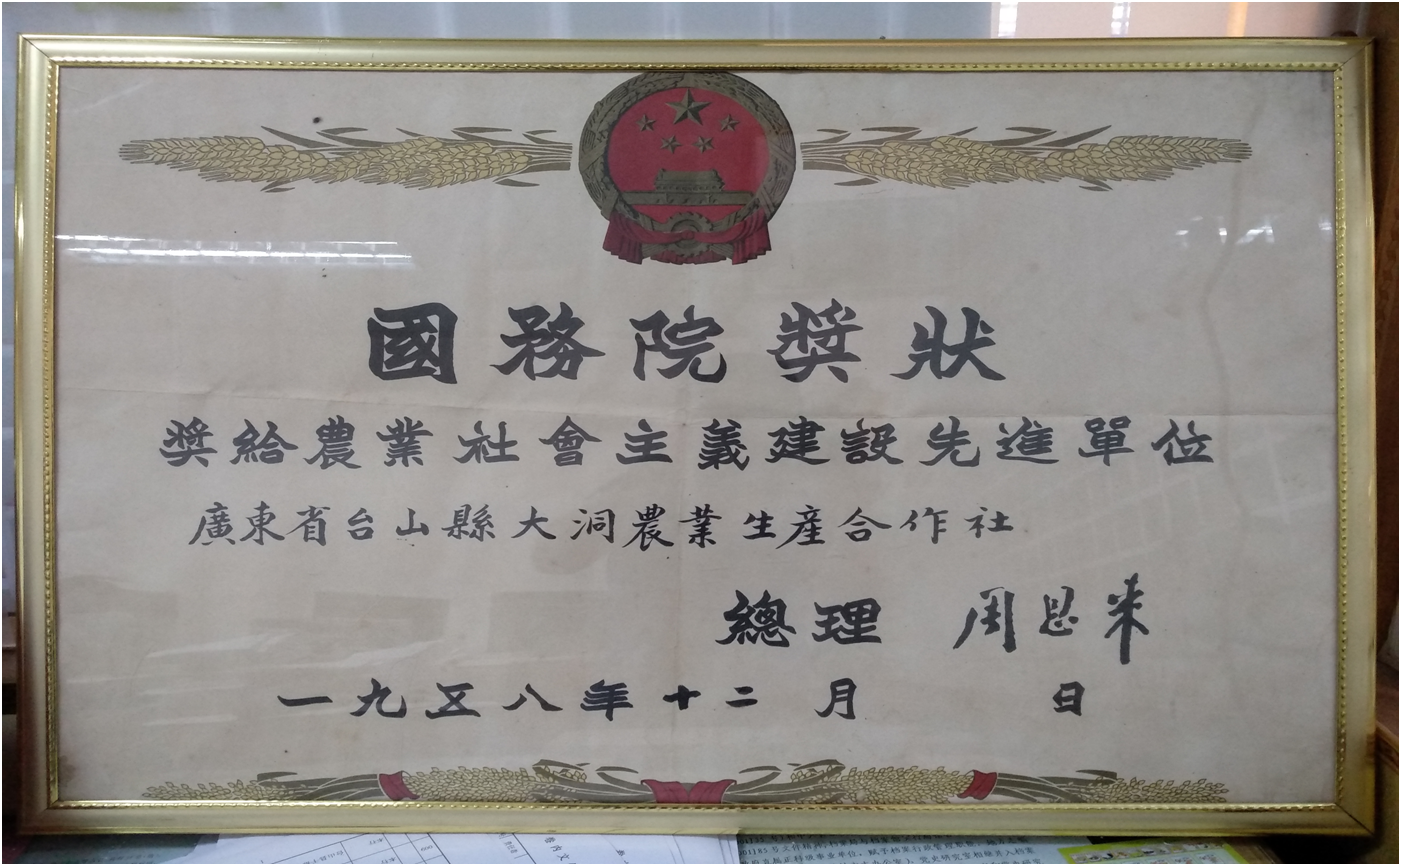 國務院獎狀
獎給農業社會主義建設先進單位
廣東省台山縣大洞農業生產合作社
總理 周恩來
一九五八年十二月 日